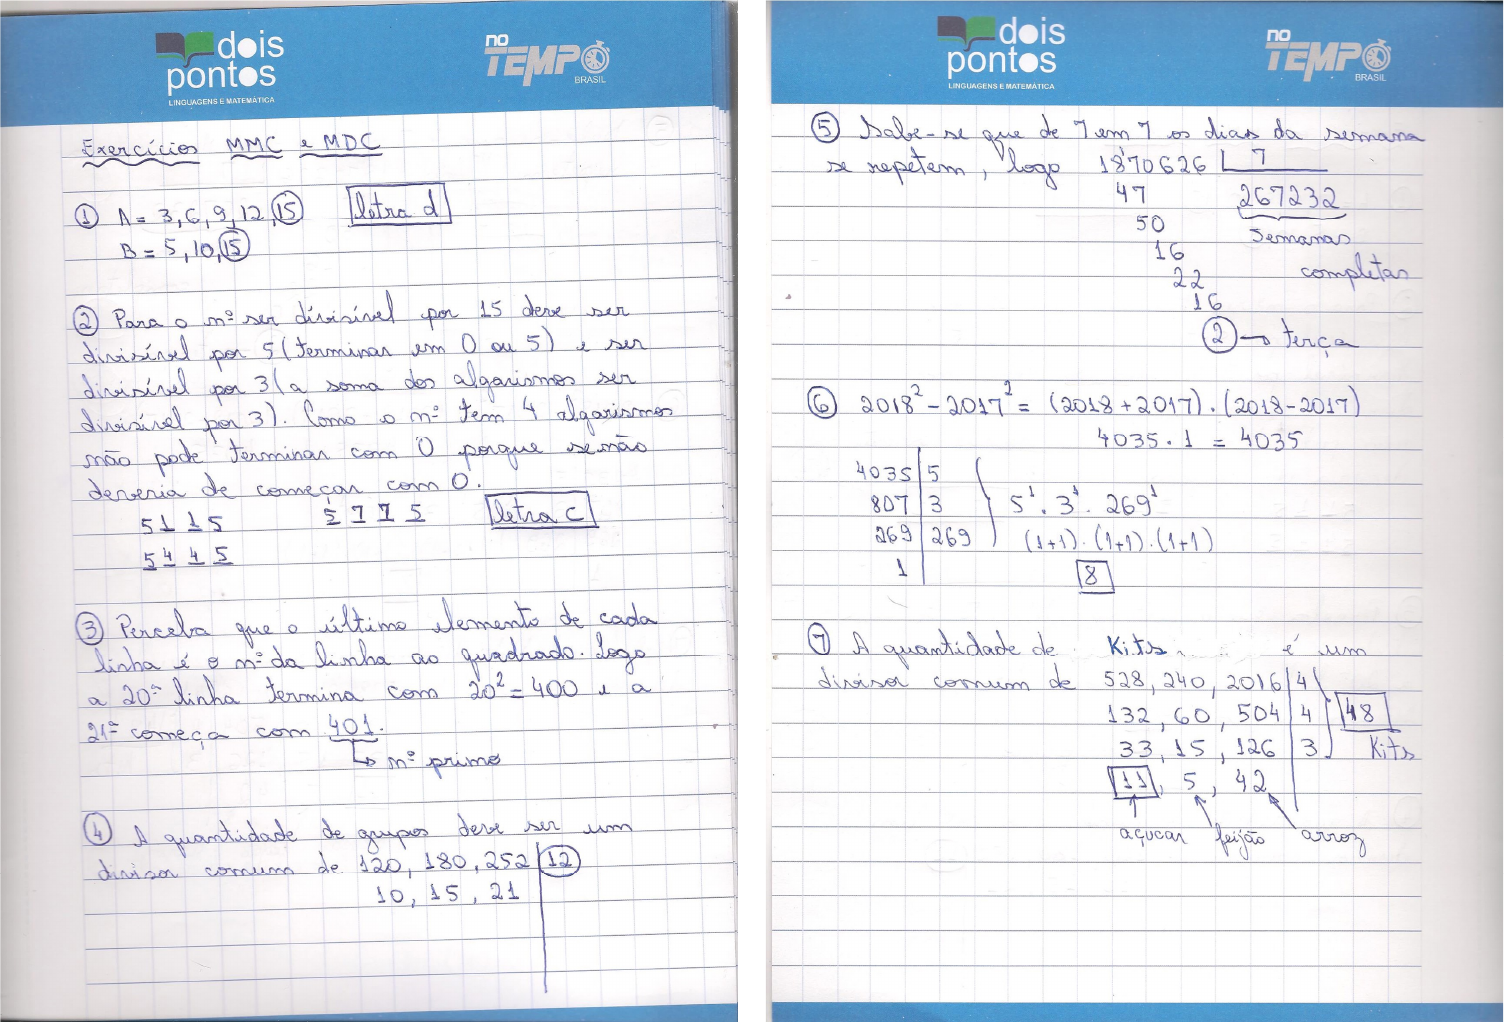 dois
pontos
LINGUAGENS E MATEMÁTICA
no
TEMPO
BRASIL
Exercícios MMC e MDC
① A = 3, 6, 9, 12, 15 letra d
B = 5, 10, 15
② Para o nº ser divisível por 15 deve ser
divisível por 5 (terminar em 0 ou 5) e ser
divisível por 3 (a soma dos algarismos ser
divisível por 3). Como o nº tem 4 algarismos
não pode terminar com 0 porque se não
deveria de começar com 0.
5 1 1 5 5 7 7 5 letra c
5 4 4 5
③ Perceba que o último elemento de cada
linha é o nº da linha ao quadrado. Logo
a 20ª linha termina com 20² = 400 e a
21ª começa com 401.
↳ nº primo
④ A quantidade de grupos deve ser um
divisor comum de 120, 180, 252 | 12
10, 15, 21
dois
pontos
LINGUAGENS E MATEMÁTICA
no
TEMPO
BRASIL
⑤ Sabe-se que de 7 em 7 os dias da semana
se repetem, logo 1870626 7
47 267232
50 semanas
16 completas
22
16
② → terça
⑥ 2018² - 2017² = (2018 + 2017) . (2018 - 2017)
4035 . 1 = 4035
4035 | 5
807 | 3 5¹ . 3¹ . 269¹
269 | 269 (1+1) . (1+1) . (1+1)
1 8
⑦ A quantidade de Kits é um
divisor comum de 528, 240, 2016 | 4
132, 60, 504 | 4 48
33, 15, 126 | 3 Kits
11, 5, 42
açucar feijão arroz